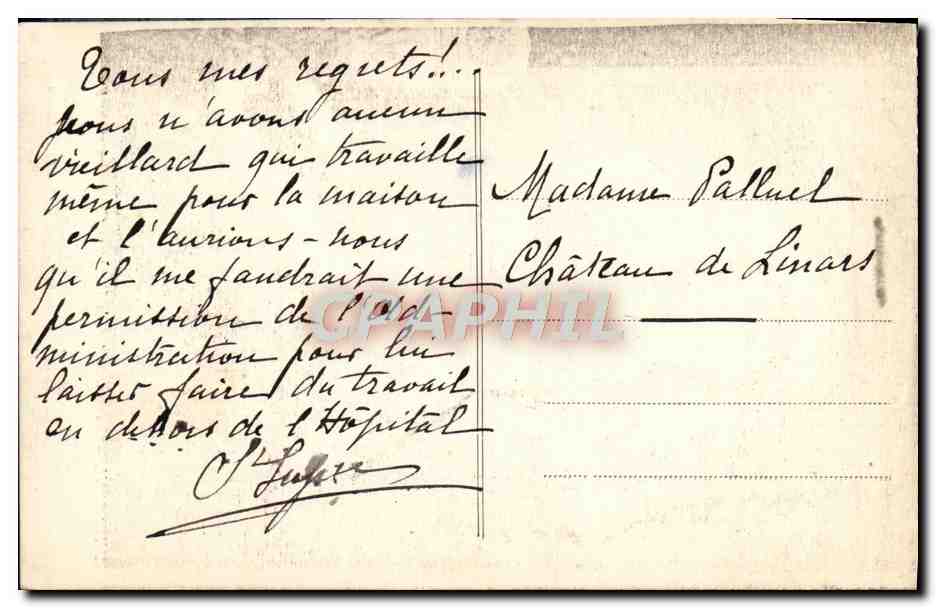 Tous mes regrets!...
nous n'avons aucun
vieillard qui travaille
même pour la maison
et l'aurions-nous
qu'il me faudrait une
permission de l'Ad-
ministration pour lui
laisser faire du travail
en dehors de l'Hôpital
Madame Palluel
Château de Linars
CPAPHIL